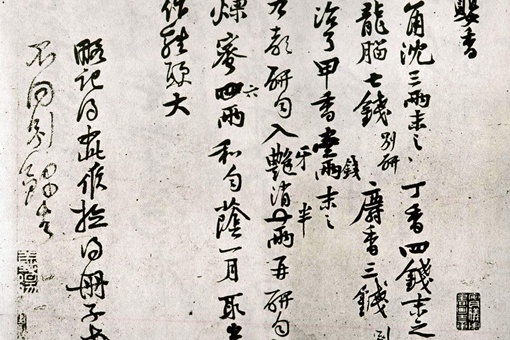 嬰香
角沈三兩末之丁香四錢末之
龍腦七錢別研麝香三錢別
治了甲香壹錢兩末之
右都研勻入艷牙消半兩再研勻
煉蜜四六兩和勻蔭一月取出
作雞頭大
略記得此候檢得冊子或
不同別錄去